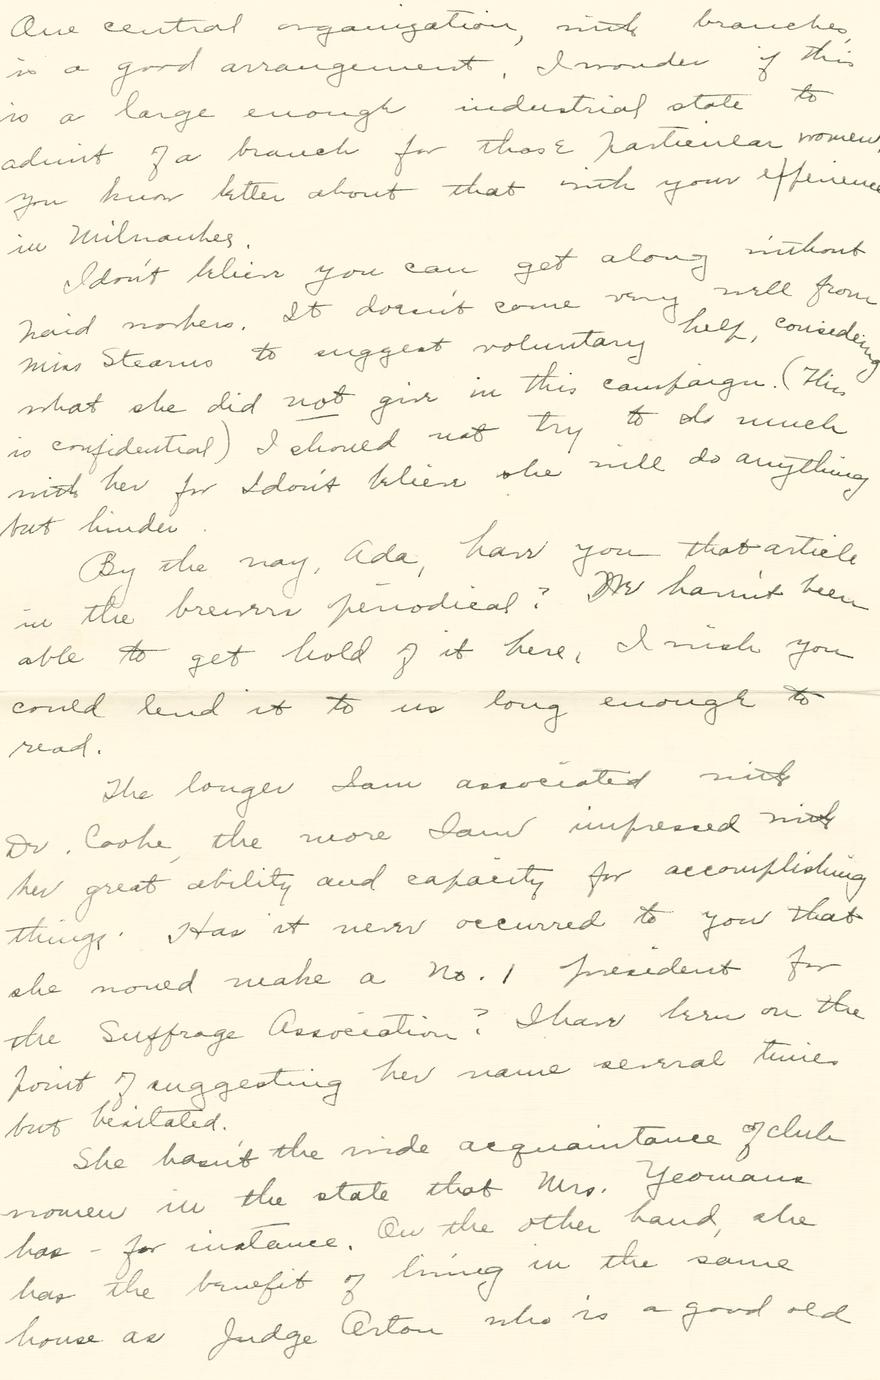 One central organization, with branches,
is a good arrangement. I wonder if this
is a large enough industrial state to
admit of a branch for those particular women,
you know better about that with your experience
in Milwaukee.
I don't believe you can get along without
paid workers. It doesn't come very well from
Miss Stearns to suggest voluntary help, considering
what she did not give in this campaign. (This
is confidential) I should not try to do much
with her for I don't believe she will do anything
but hinder.
By the way, Ada, have you that article
in the brewers periodical? We haven't been
able to get hold of it here, I wish you
could lend it to us long enough to
read.
The longer I am associated with
Dr. Cooke, the more I am impressed with
her great ability and capacity for accomplishing
things. Has it never occurred to you that
she would make a No. 1 president for
the Suffrage Association? I have been on the
point of suggesting her name several times
but hesitated.
She hasn't the wide acquaintance of club
women in the state that Mrs. Yeomans
has - for instance. On the other hand, she
has the benefit of living in the same
house as Judge Orton who is a good old